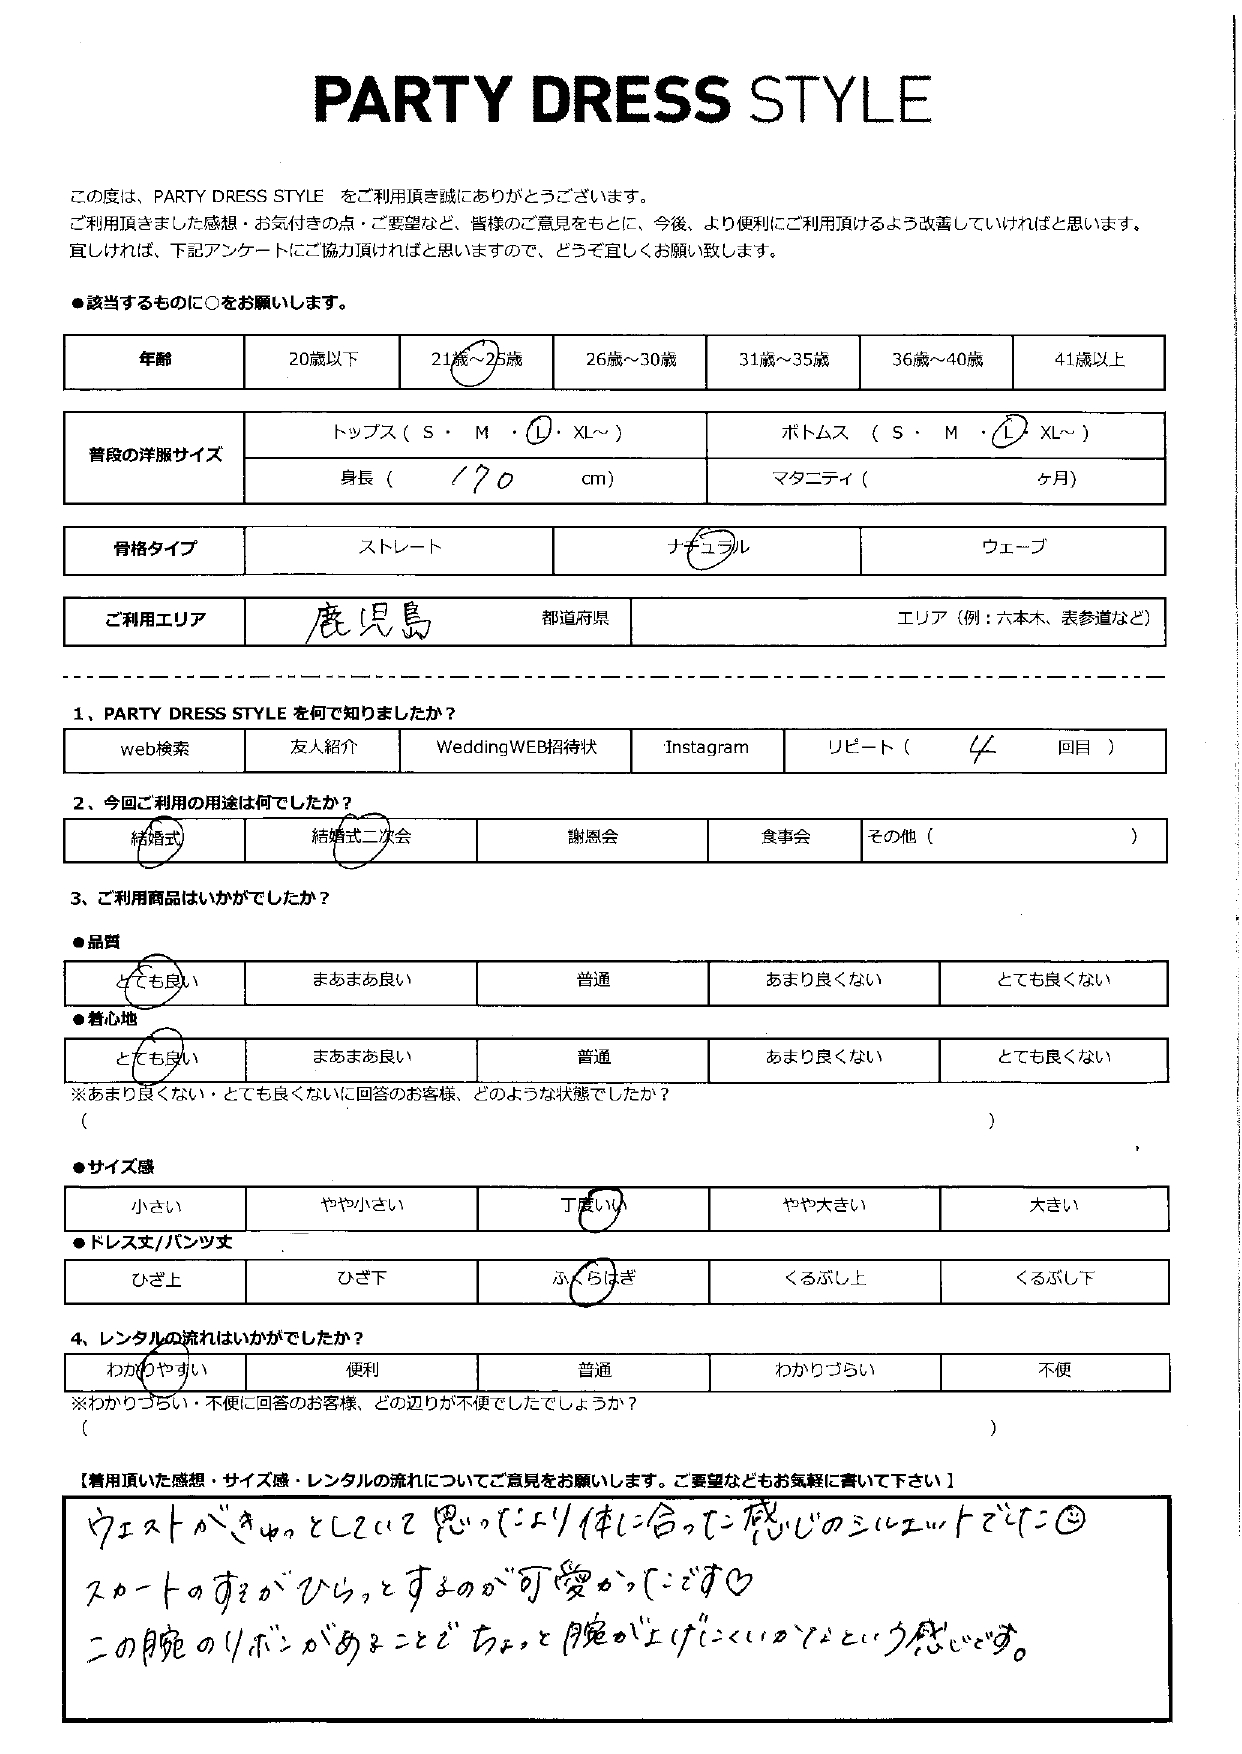 PARTY DRESS STYLE
この度は、PARTY DRESS STYLE をご利用頂き誠にありがとうございます。
ご利用頂きました感想・お気付きの点・ご要望など、皆様のご意見をもとに、今後、より便利にご利用頂けるよう改善していければと思います。
宜しければ、下記アンケートにご協力頂ければと思いますので、どうぞ宜しくお願い致します。
●該当するものに○をお願いします。
年齢 20歳以下 21歳～25歳 26歳～30歳 31歳～35歳 36歳～40歳 41歳以上
普段の洋服サイズ
トップス ( S ・ M ・ L ・ XL～ ) ボトムス ( S ・ M ・ L ・ XL～ )
身長 ( 170 cm) マタニティ ( ヶ月)
骨格タイプ ストレート ナチュラル ウェーブ
ご利用エリア 鹿児島 都道府県 エリア（例：六本木、表参道など）
1、PARTY DRESS STYLE を何で知りましたか？
web検索 友人紹介 WeddingWEB招待状 Instagram リピート ( 4 回目 )
2、今回ご利用の用途は何でしたか？
結婚式 結婚式二次会 謝恩会 食事会 その他 ( )
3、ご利用商品はいかがでしたか？
●品質
とても良い まあまあ良い 普通 あまり良くない とても良くない
●着心地
とても良い まあまあ良い 普通 あまり良くない とても良くない
※あまり良くない・とても良くないに回答のお客様、どのような状態でしたか？
( )
●サイズ感
小さい やや小さい 丁度いい やや大きい 大きい
●ドレス丈/パンツ丈
ひざ上 ひざ下 ふくらはぎ くるぶし上 くるぶし下
4、レンタルの流れはいかがでしたか？
わかりやすい 便利 普通 わかりづらい 不便
※わかりづらい・不便に回答のお客様、どの辺りが不便でしたでしょうか？
( )
【着用頂いた感想・サイズ感・レンタルの流れについてご意見をお願いします。ご要望などもお気軽に書いて下さい】
ウエストがきゅっとしていて思ったより体に合った感じのシルエットでした☺
スカートのすそがひらっとするのが可愛かったです♡
二の腕のリボンがあることでちょっと腕が上げにくいかなという感じです。